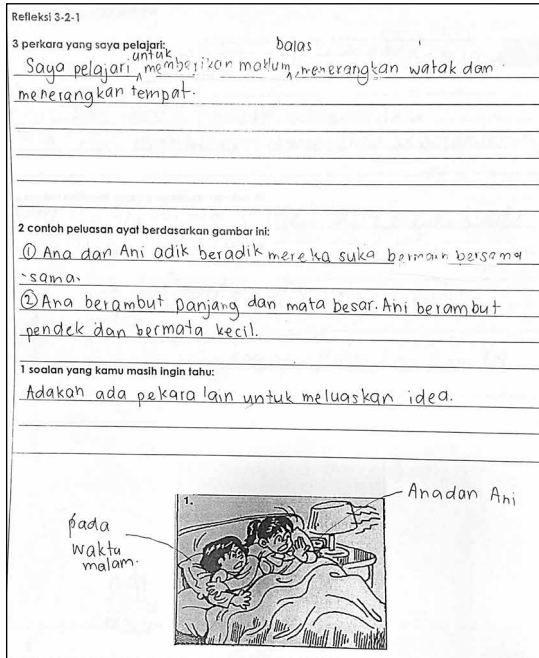 Refleksi 3-2-1
3 perkara yang saya pelajari:
Saya pelajari untuk memberikan maklum balas, menerangkan watak dan
menerangkan tempat.
2 contoh peluasan ayat berdasarkan gambar ini:
① Ana dan Ani adik beradik mereka suka bermain bersama
-sama.
② Ana berambut panjang dan mata besar. Ani berambut
pendek dan bermata kecil.
1 soalan yang kamu masih ingin tahu:
Adakah ada pekara lain untuk meluaskan idea.
1.
Ana dan Ani
pada
waktu
malam.